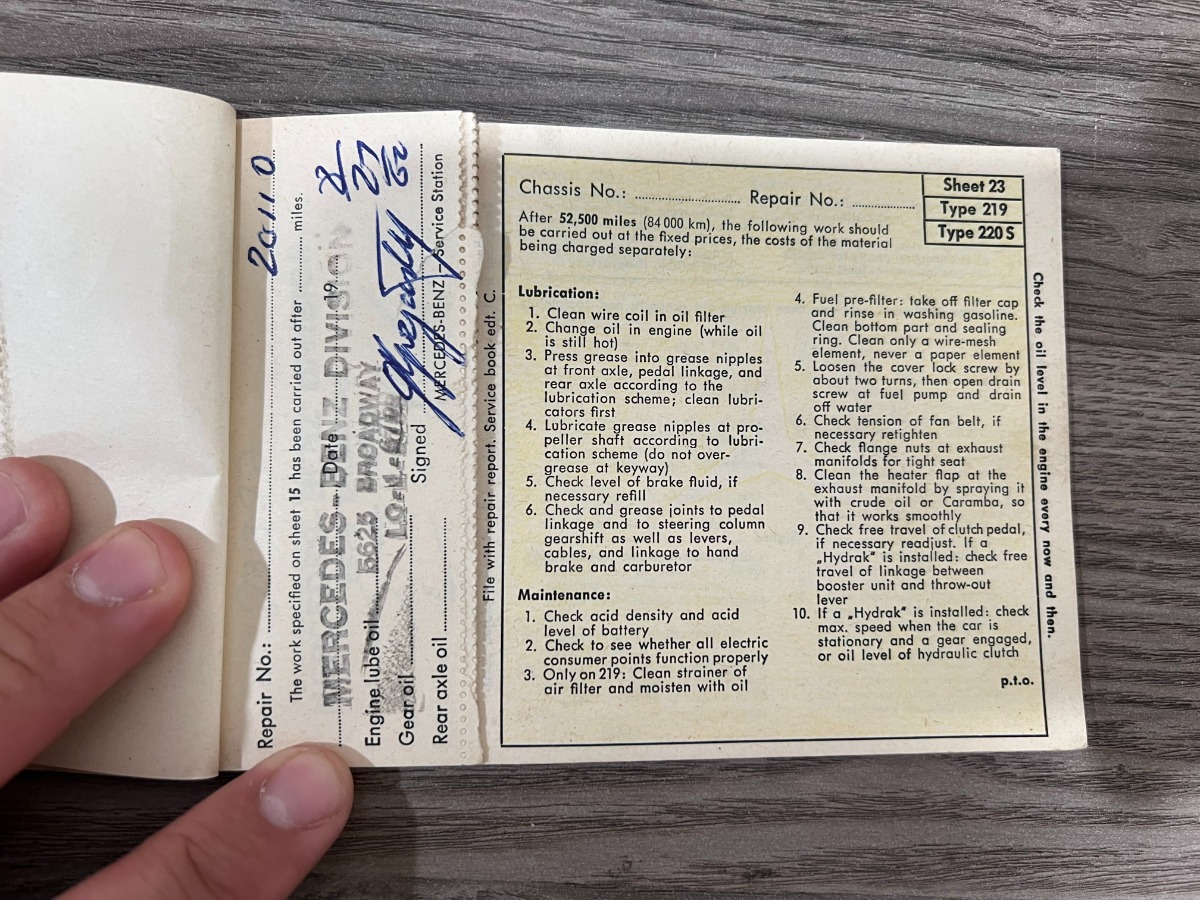 Repair No.:
20110
The work specified on sheet 15 has been carried out after miles.
MERCEDES-BENZ DIVISION
Date 19
8/27/62
5625 BROADWAY
Engine lube oil
Gear oil
Signed
Rear axle oil
MERCEDES-BENZ – Service Station
File with repair report. Service book edt. C.
Chassis No.: Repair No.:
Sheet 23
Type 219
Type 220 S
After 52,500 miles (84 000 km), the following work should
be carried out at the fixed prices, the costs of the material
being charged separately:
Lubrication:
1. Clean wire coil in oil filter
2. Change oil in engine (while oil
is still hot)
3. Press grease into grease nipples
at front axle, pedal linkage, and
rear axle according to the
lubrication scheme; clean lubri-
cators first
4. Lubricate grease nipples at pro-
peller shaft according to lubri-
cation scheme (do not over-
grease at keyway)
5. Check level of brake fluid, if
necessary refill
6. Check and grease joints to pedal
linkage and to steering column
gearshift as well as levers,
cables, and linkage to hand
brake and carburetor
Maintenance:
1. Check acid density and acid
level of battery
2. Check to see whether all electric
consumer points function properly
3. Only on 219: Clean strainer of
air filter and moisten with oil
4. Fuel pre-filter: take off filter cap
and rinse in washing gasoline.
Clean bottom part and sealing
ring. Clean only a wire-mesh
element, never a paper element
5. Loosen the cover lock screw by
about two turns, then open drain
screw at fuel pump and drain
off water
6. Check tension of fan belt, if
necessary retighten
7. Check flange nuts at exhaust
manifolds for tight seat
8. Clean the heater flap at the
exhaust manifold by spraying it
with crude oil or Caramba, so
that it works smoothly
9. Check free travel of clutch pedal,
if necessary readjust. If a
„Hydrak" is installed: check free
travel of linkage between
booster unit and throw-out
lever
10. If a „Hydrak" is installed: check
max. speed when the car is
stationary and a gear engaged,
or oil level of hydraulic clutch
p.t.o.
Check the oil level in the engine every now and then.